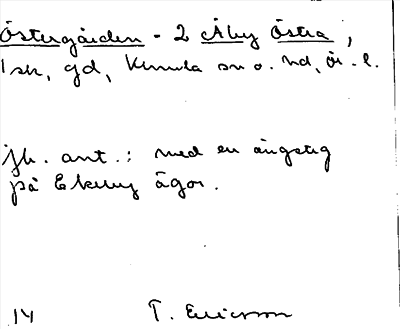 Östergården - 2 Åby Östra,
1 sk, gd, Kumla sn o. hd, Ör. l.
jb. ant.: med en ångstig
på Ekeby ägor.
14 T. Ericson